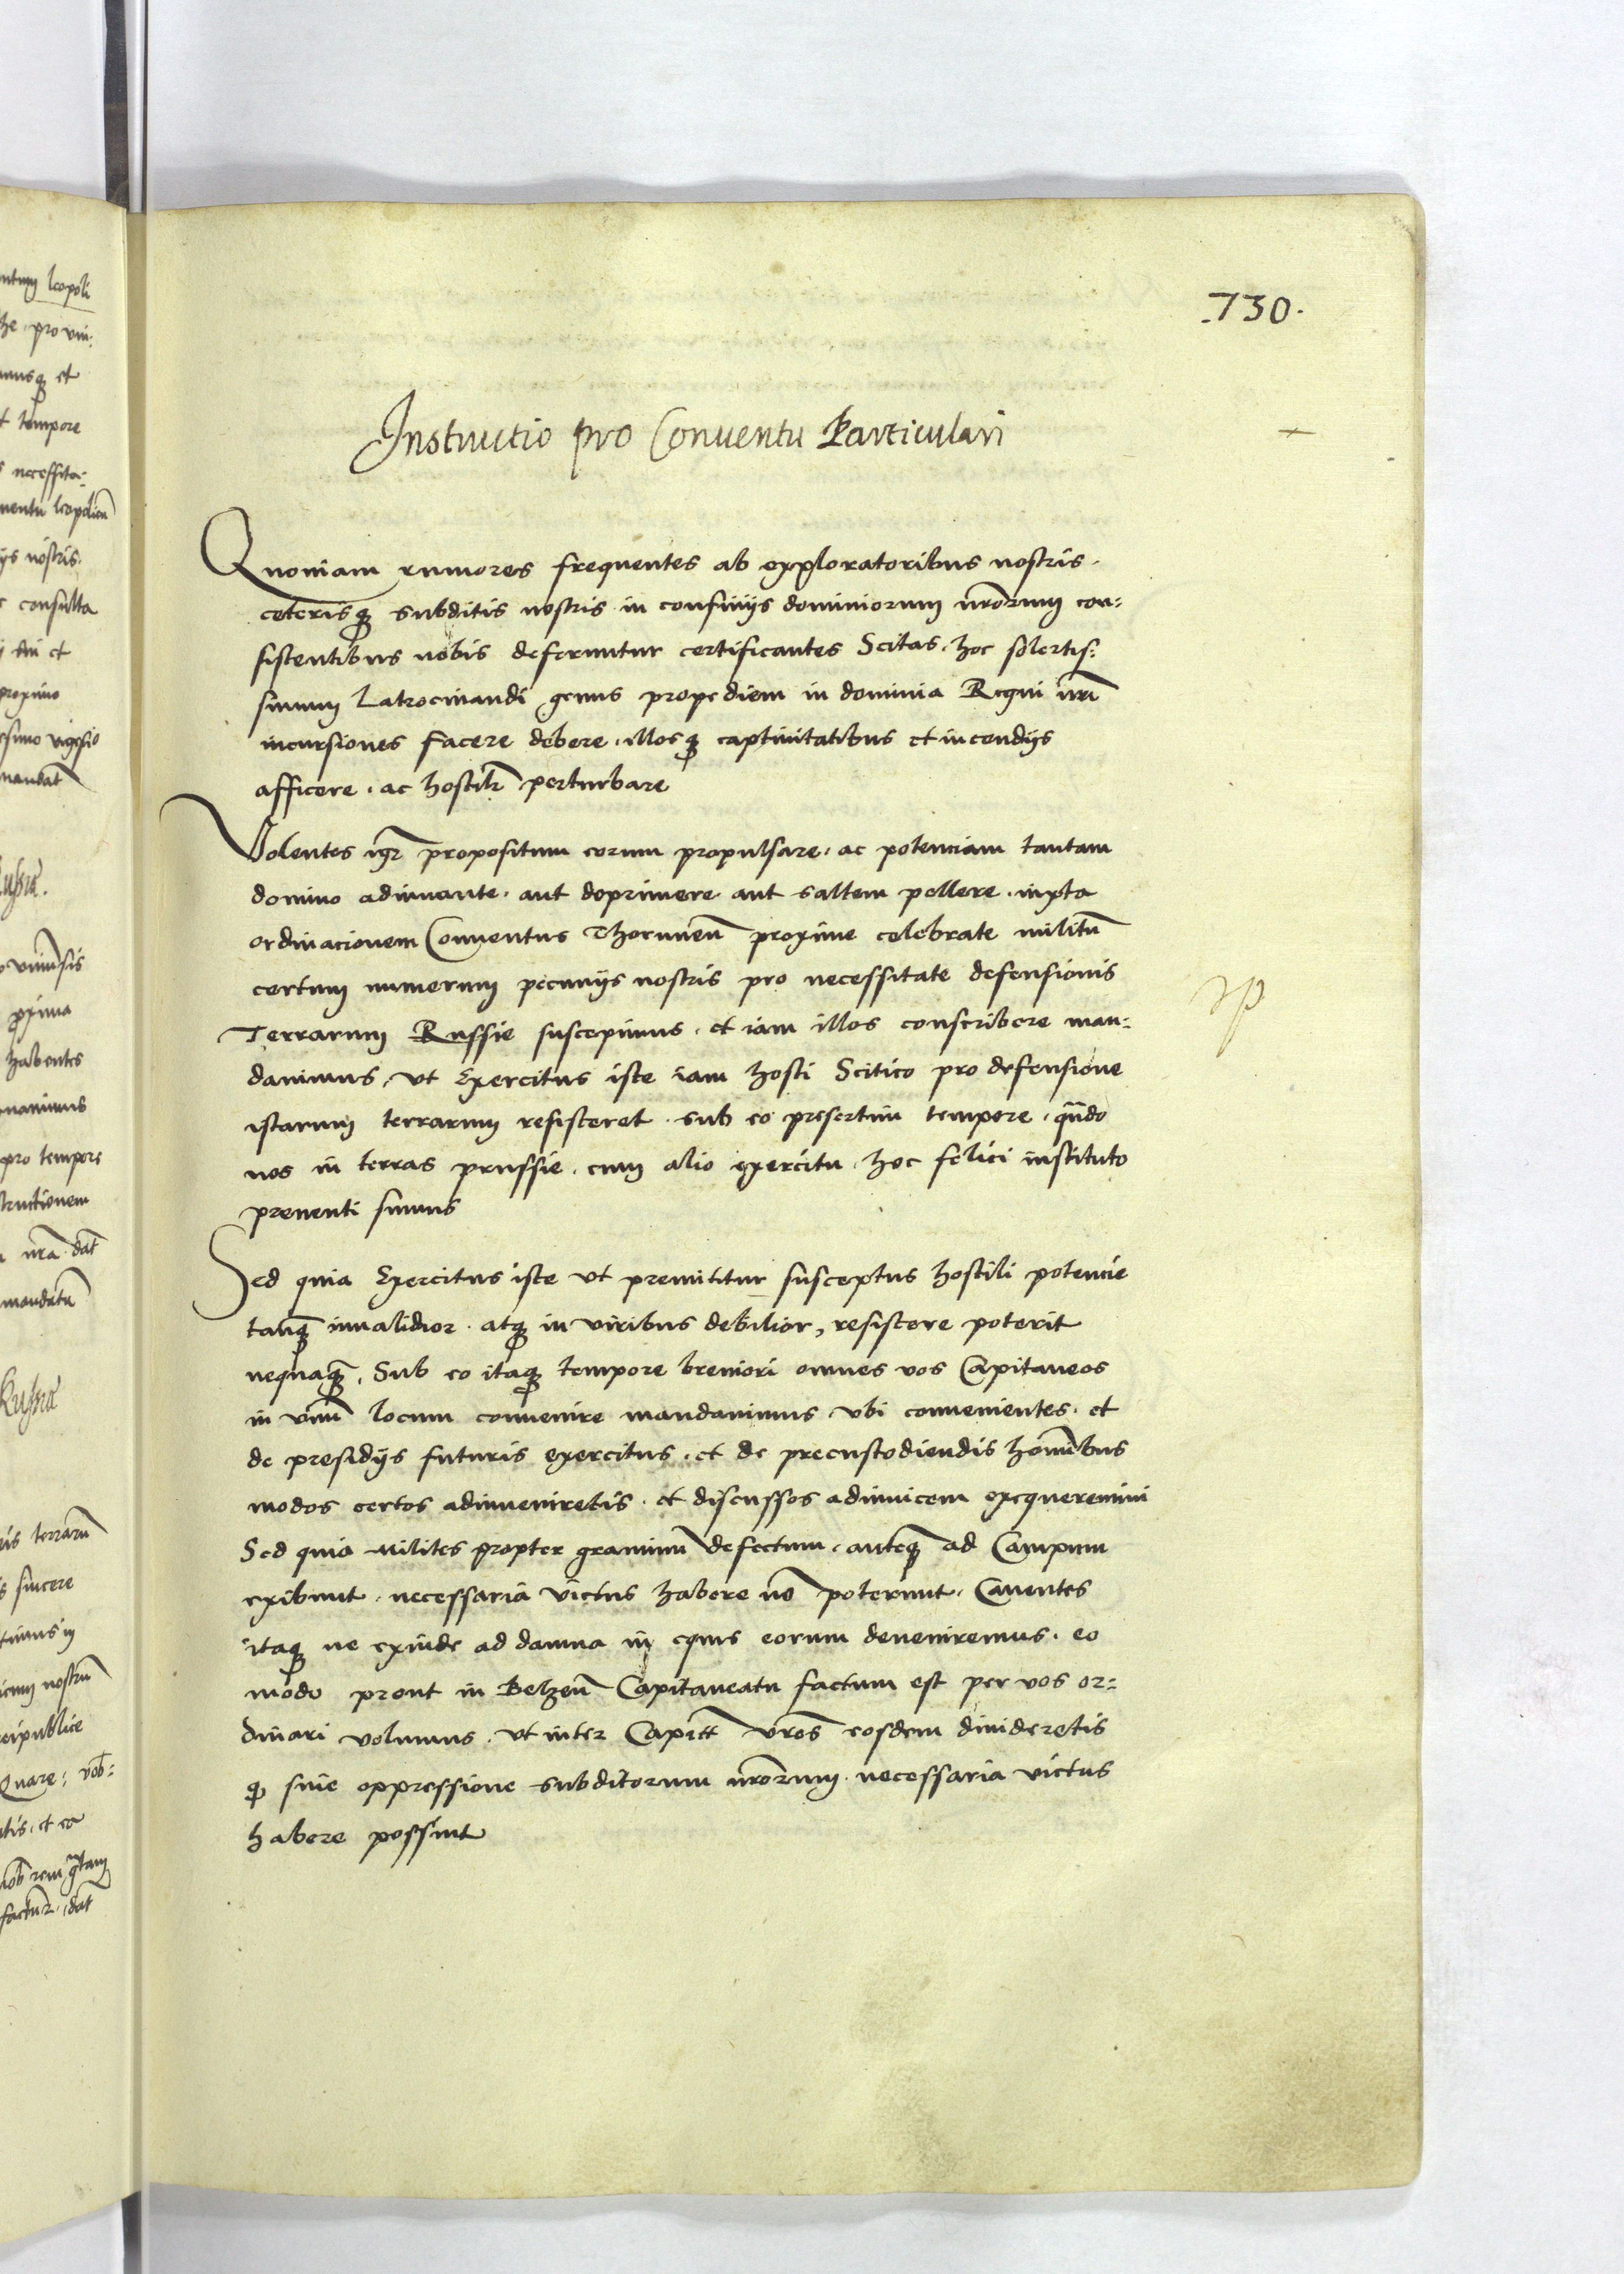 .730.
Instructio pro Conuentu Particulari
Quoniam rumores frequentes ab exploratoribus nostris.
ceterisq̃ subditis nostris in confinijs dominiorum nr̃orum con:
sistentibus nobis deferuntur certificantes Scitas, hoc solertis:
simum Latrocinandi genus propediem in dominia Regni nr̃i
incursiones facere debere, illosq̃ captiuitatibus et incendijs
afficere, ac hostilr̃ perturbare
Volentes igr̃ propositum eorum propulsare, ac potenciam tantam
domino adiuuante, aut deprimere aut saltem pellere, iuxta
ordinacionem Conuentus Thorunen̄ proxime celebrate militū
certum numerum pecunijs nostris pro necessitate defensionis
Terrarum Russie suscepimus, et iam illos conscribere man:
dauimus, vt Exercitus iste iam hosti Scitico pro defensione
istarum terrarum resisteret, sub eo presertim tempore, qñdo
nos in terras prussie, cum alio exercitu, hoc felici instituto
preuenti sumus
Sed quia Exercitus iste vt premittitur susceptus hostili potencie
tanq̃ inualidior, atq̃ in viribus debilior, resistere poterit
nequaq̃, Sub eo itaq̃ tempore breuiori omnes vos Capitaneos
in vnū locum conuenire mandauimus, vbi conuenientes, et
de presidijs futuris exercitus, et de precustodiendis hominibus
modos certos adinueniretis, et discussos adinuicem exequeremini
Sed quia milites propter graminū defectum, anteq̃ ad Campum
exibunt, necessaria victus habere nō poterunt, Cauentes
itaq̃ ne exinde ad damna in equis eorum deueniremus, eo
modo prout in Belzen̄ Capitaneatu factum est per vos or:
dinari volumus, vt inter Capitt̄ vr̃os eosdem diuideretis
q̃ sine oppressione subditorum nr̃orum, necessaria victus
habere possint